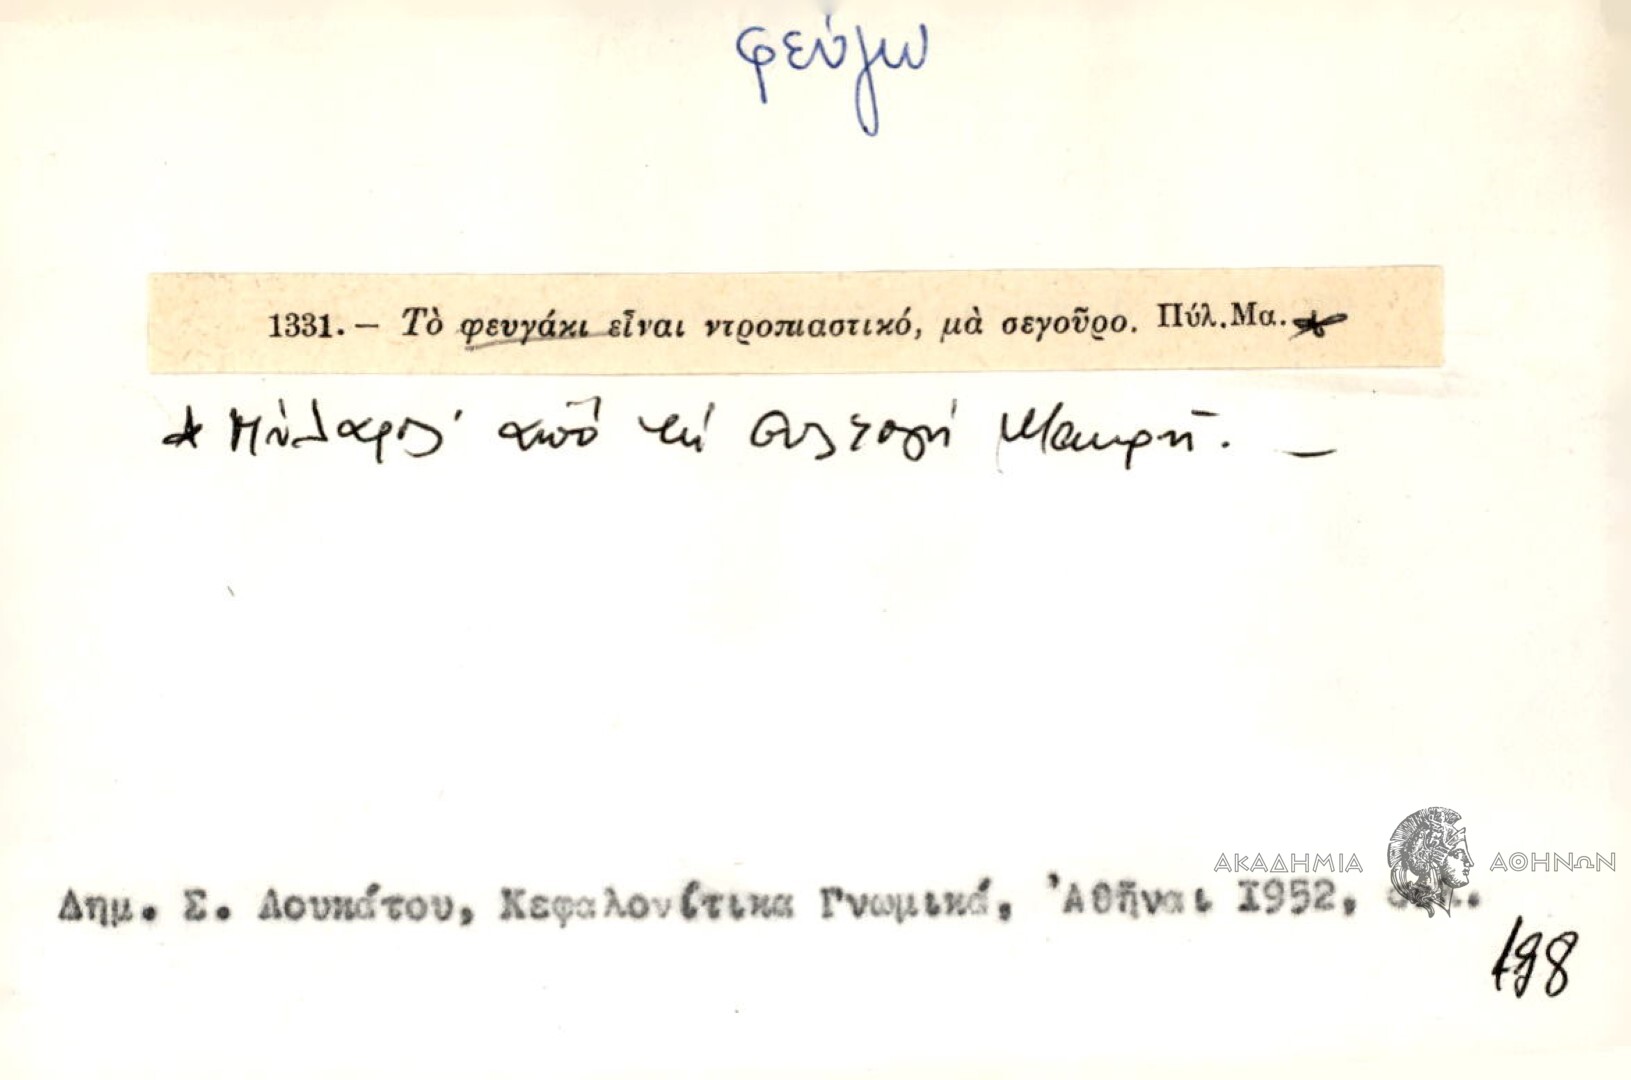 φεύγω
1331. — Τὸ φευγάκι εἶναι ντροπιαστικό, μὰ σεγοῦρο. Πύλ. Μα.*
* Πύλαρος· ἀπὸ τὴ συλλογὴ Μακρῆ. —
ΑΚΑΔΗΜΙΑ ΑΘΗΝΩΝ
Δημ. Σ. Λουκάτου, Κεφαλονίτικα Γνωμικά, Ἀθῆναι 1952, σελ.
198